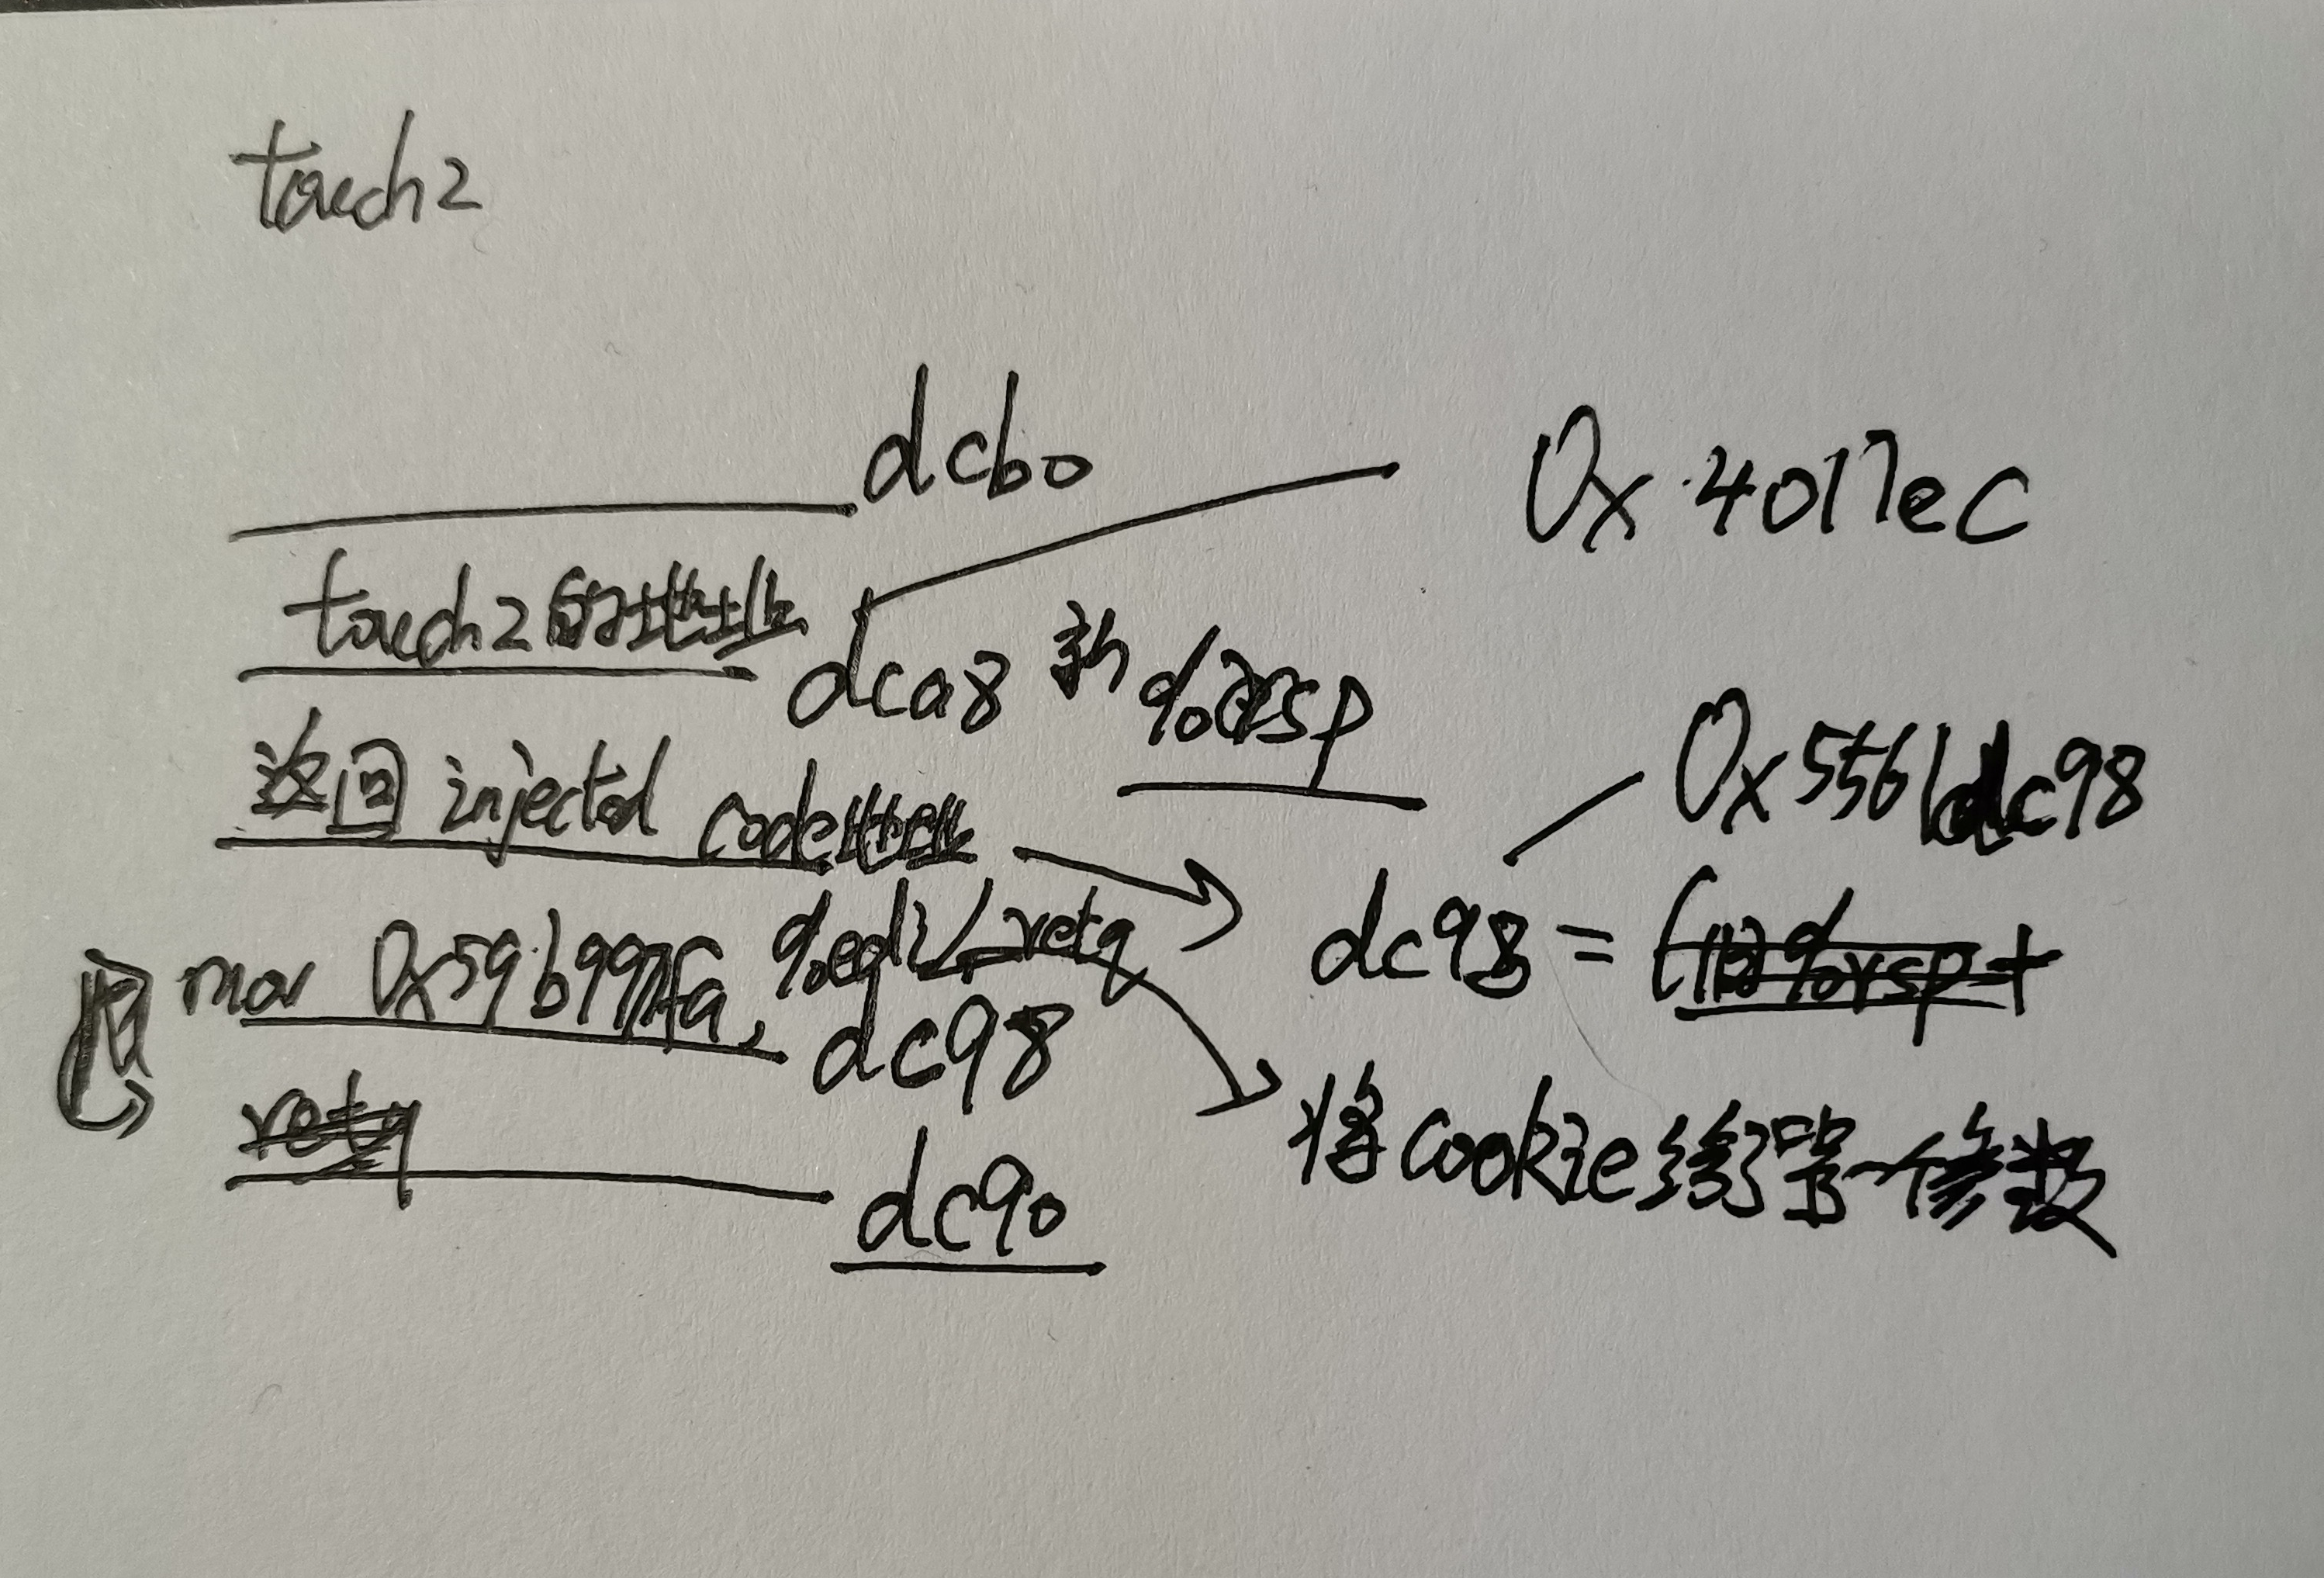 touch2
dcb0
0x4017ec
touch2的地址
dca8 新 %rsp
返回 injected code地址
0x5561dc98
mov 0x59b997fa, %edi / retq
dc98 =
dc98
将cookie给第一修数
dc90